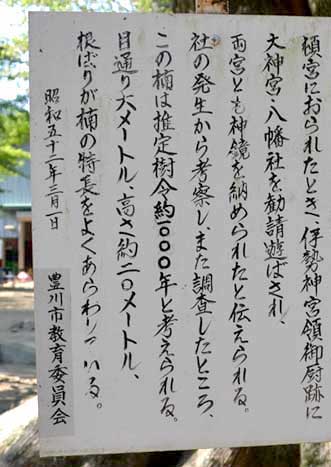 頓宮におられたとき、伊勢神宮領御厨跡に
大神宮・八幡社を勧請遊ばされ、
両宮とも神鏡を納められたと伝えられる。
社の発生から考察し、また調査したところ、
この楠は推定樹令約一〇〇〇年と考えられる。
目通り六メートル、高さ約二〇メートル、
根ばりが楠の特長をよくあらわしている。
昭和五十二年三月一日
豊川市教育委員会